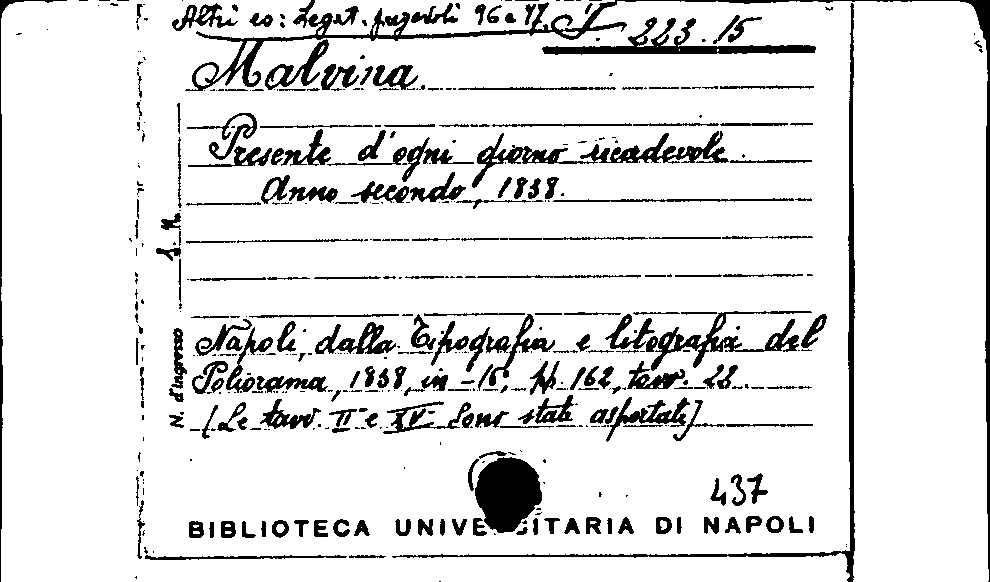 Altri es: Legat. pregevoli 96 e 97. T. 223.15
Malvina.
Presente d'ogni giorno ricadevole.
Anno secondo, 1838.
Napoli, dalla Tipografia e litografia del
Poliorama, 1838, in-16°, pp. 162, tavv. 22.
[Le tavv. II e XV sono state asportate]
N. d'Ingresso
437
BIBLIOTECA UNIVERSITARIA DI NAPOLI